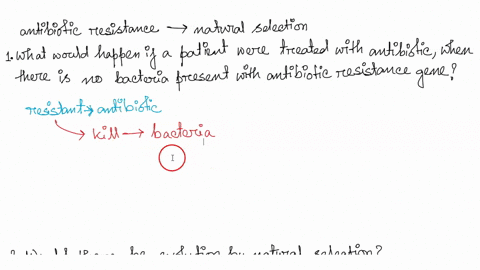 antibiotic resistance → natural selection
1. What would happen if a patient were treated with antibiotic, when
there is no bacteria present with antibiotic resistance gene?
resistant → antibiotic
kill → bacteria
evolution by natural selection?